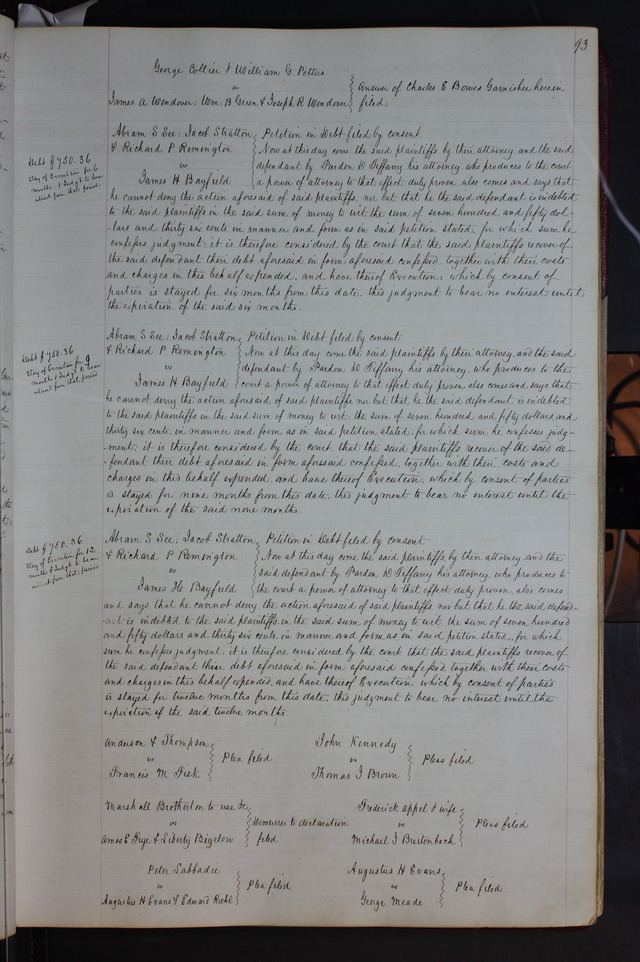 93
George Collier & William G Pettus
vs
James A Wendover, Wm. B Green & Joseph R Wendover
Answer of Charles E Bowes Garnishee herein
filed
Debt $750.36
Stay of Execution for 6
months & Judgt to bear
interest from that period
Abram S See, Jacob Stratton
& Richard P Remington
vs
James H Bayfield
Petition in Debt filed by consent
Now at this day come the said plaintiffs by their attorney and the said
defendant by Pardon D Tiffany his attorney, who produces to the court
a power of attorney to that effect duly proven also comes and says that
he cannot deny the action aforesaid of said plaintiffs, nor but that he the said defendant is indebted
to the said plaintiffs in the said sum of money to wit the sum of seven hundred and fifty dol-
-lars and thirty six cents in manner and form as in said petition stated, for which sum he
confesses judgment; it is therefore considered by the court that the said plaintiffs recover of
the said defendant their debt aforesaid in form aforesaid confessed, together with their costs
and charges in this behalf expended, and have thereof Execution; which by consent of
parties is stayed for six months from this date, this judgment to bear no interest until
the expiration of the said six months.
Debt $750.36
Stay of Execution for 9
months & Judgt to bear
interest from that period
Abram S See, Jacob Stratton
& Richard P Remington
vs
James H Bayfield
Petition in Debt filed by consent
Now at this day come the said plaintiffs by their attorney, and the said
defendant by Pardon D Tiffany his attorney, who produces to the
court a power of attorney to that effect duly proven also comes and says that
he cannot deny the action aforesaid of said plaintiffs nor but that he the said defendant is indebted
to the said plaintiffs in the said sum of money to wit, the sum of seven hundred and fifty dollars and
thirty six cents, in manner and form as in said petition stated, for which sum he confesses judg-
-ment; it is therefore considered by the court that the said plaintiffs recover of the said de-
-fendant their debt aforesaid in form aforesaid confessed, together with their costs and
charges in this behalf expended and have thereof Execution; which by consent of parties
is stayed for nine months from this date, this judgment to bear no interest until the
expiration of the said nine months.
Debt $750.36
Stay of Execution for 12
months & Judgt to bear
interest from that period
Abram S See, Jacob Stratton
& Richard P Remington
vs
James H Bayfield
Petition in Debt filed by consent
Now at this day come the said plaintiffs, by their attorney and the
said defendant by Pardon D Tiffany his attorney, who produces to
the court a power of attorney to that effect duly proven, also comes
and says that he cannot deny the action aforesaid of said plaintiffs, nor but that he the said defend-
-ant is indebted to the said plaintiffs, in the said sum of money to wit the sum of seven hundred
and fifty dollars and thirty six cents, in manner and form as in said petition stated, for which
sum he confesses judgment; it is therefore considered by the court that the said plaintiffs recover of
the said defendant their debt aforesaid in form aforesaid confessed together with their costs
and charges in this behalf expended, and have thereof Execution which by consent of parties
is stayed for twelve months from this date, this judgment to bear no interest until the
expiration of the said twelve months.
Anderson & Thompson
vs
Francis M Fisk
Plea filed
John Kennedy
vs
Thomas J Brown
Pleas filed
Marshall Brotherton to use &c.
vs
Amos E Frye & Liberty Bigelow
Demurrer to declaration
filed
Frederick Appel & wife
vs
Michael J Breitenbach
Pleas filed
Peter Labbadie
vs
Augustus H Evans & Edward Riehl
Plea filed
Augustus H Evans
vs
George Meade
Plea filed